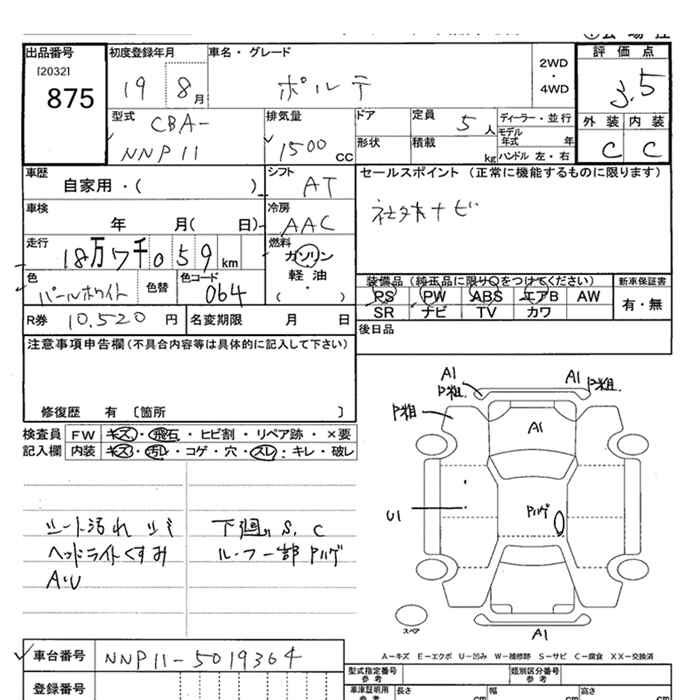 出品番号
[2032]
875
初度登録年月
19 8月
車名・グレード
ポルテ
2WD
・
4WD
評価点
3.5
外装 内装
C C
型式
CBA-
NNP11
排気量
1500 CC
ドア
形状
定員 5人
積載 kg
ディーラー・並行
モデル年式 年
ハンドル 左・右
車歴
自家用・( )
シフト
AT
セールスポイント (正常に機能するものに限ります)
社外ナビ
車検
年 月( 日)
冷房
AAC
走行
18万7千059km
燃料
ガソリン
軽油
・
( )
色
パールホワイト
色替
色コード
064
装備品(純正品に限り○をつけてください)
PS PW ABS エアB AW
SR ナビ TV カワ
新車保証書
有・無
R券 10,520 円
名変期限 月 日
後日品
注意事項申告欄(不具合内容等は具体的に記入して下さい)
修復歴 有 〔箇所 〕
検査員記入欄
FW キズ・飛石・ヒビ割・リペア跡・×要
内装 キズ・汚レ・コゲ・穴・スレ・キレ・破レ
シート汚れ シミ
ヘッドライトくすみ
A・U
下廻りS.C
ルーフ一部Pハゲ
A1
P粗
A1
P粗
P粗
A1
U1
Pハゲ
A1
スペア
A−キズ E−エクボ U−凹み W−補修跡 S−サビ C−腐食 XX−交換済
車台番号 NNP11-5019364
登録番号
型式指定番号
参考
類別区分番号
参考
車検証明用
長さ cm
幅 cm
高さ cm